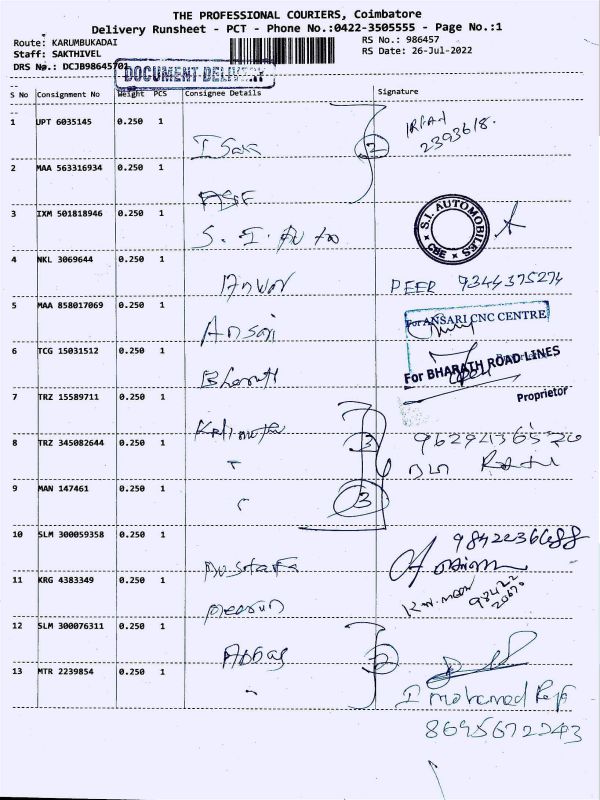 THE PROFESSIONAL COURIERS, Coimbatore
Delivery Runsheet - PCT - Phone No.:0422-3505555 - Page No.:1
Route: KARUMBUKADAI
RS No.: 986457
Staff: SAKTHIVEL
RS Date: 26-Jul-2022
DRS No.: DCJB98645701
DOCUMENT DELIVERY
S No Consignment No Weight PCS Consignee Details Signature
1 UPT 6035145 0.250 1
2393618.
2
2 MAA 563316934 0.250 1
3 IXM 501818946 0.250 1
S.I. AUTOMOBILES
CBE
S. I. Auto
4 NKL 3069644 0.250 1
PEER 9344375274
Anwar
5 MAA 858017069 0.250 1
For ANSARI CNC CENTRE
Ansari
6 TCG 15031512 0.250 1
For BHARATH ROAD LINES
Proprietor
7 TRZ 15589711 0.250 1
8 TRZ 345082644 0.250 1
3
9 MAN 147461 0.250 1
3
10 SLM 300059358 0.250 1
Mustafa
11 KRG 4383349 0.250 1
12 SLM 300076311 0.250 1
Abbas
2
13 MTR 2239854 0.250 1
I mohamed
8695672243